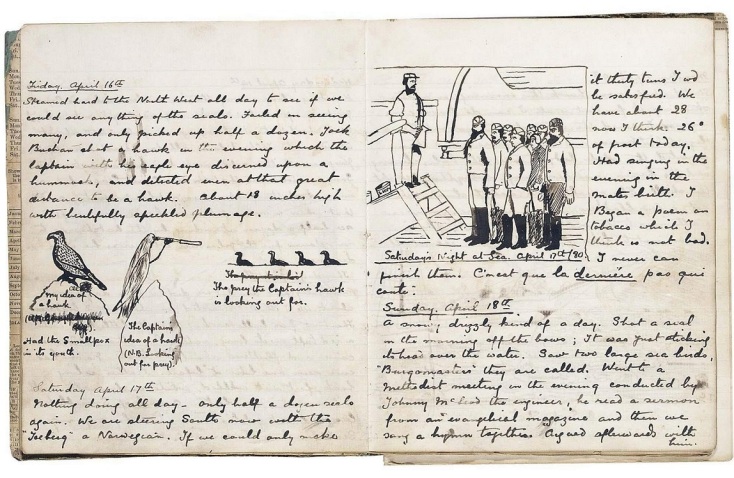 Friday. April 16th
Steamed hard to the North West all day to see if we
could see anything of the seals. Failed in seeing
many, and only picked up half a dozen. Jack
Buchan shot a hawk in the evening which the
captain with his eagle eye discerned upon a
hummock, and detected even at that great
distance to be a hawk. About 18 inches high
with beautifully speckled plumage.
My idea of
a hawk
Had the Smallpox
in its youth.
The Captain's
idea of a hawk
(N.B. Looking
out for prey).
The prey the Captain's hawk
is looking out for.
Saturday April 17th
Nothing doing all day - only half a dozen seals
again. We are steering South now with the
"Iceberg" a Norwegian. If we could only make
it thirty tuns I wd
be satisfied. We
have about 28
now I think. 26°
of frost today.
Had singing in the
evening in the
mates berth. I
Began a poem on
tobacco which I
think is not bad.
Saturday's Night at Sea. April 17th/80
I never can
finish them. C'en'est que la dernière pas qui
coute.
Sunday. April 18th
A snowy, drizzly kind of a day. Shot a seal
in the morning off the bows; It was just sticking
its head over the water. Saw two large sea birds,
"Burgomasters" they are called. Went to a
Methodist meeting in the evening conducted by
Johnny McLeod the engineer, he read a sermon
from an evangelical magazine and then we
sang a hymn together. Argued afterwards with
him.